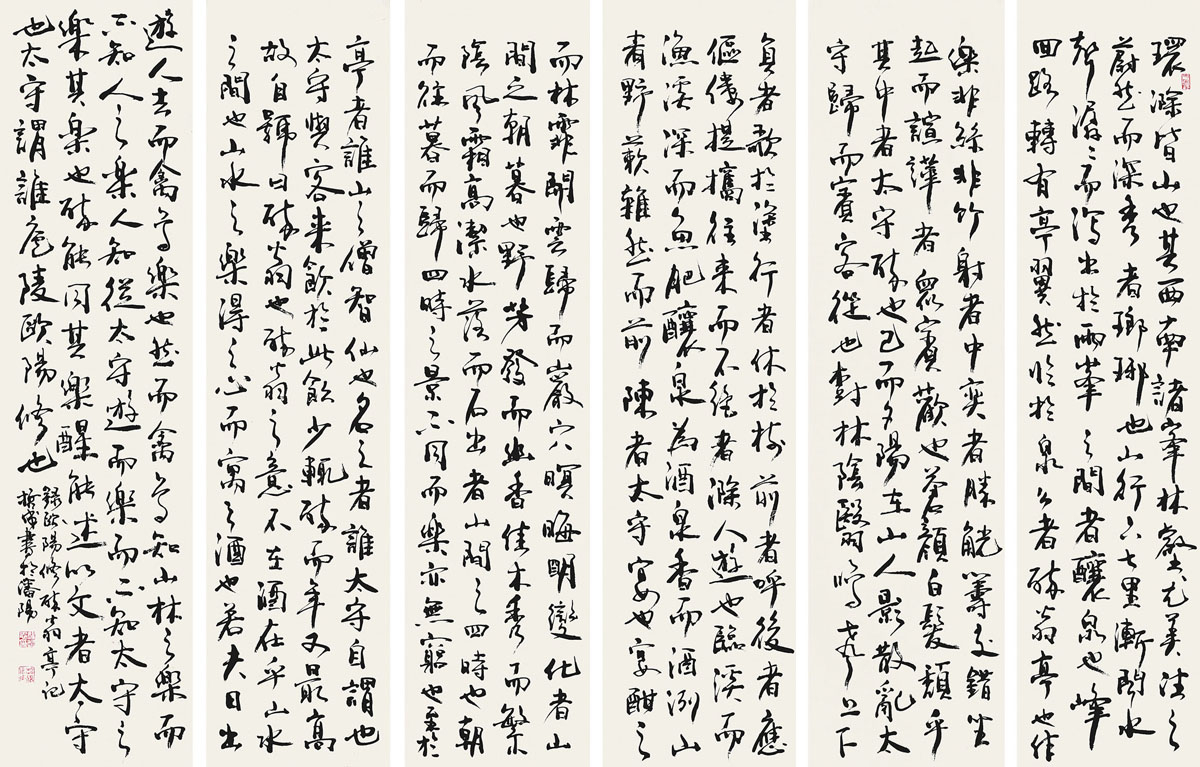 環滁皆山也其西南諸峯林壑尤美望之
蔚然而深秀者瑯琊也山行六七里漸聞水
聲潺々而瀉出於兩峯之間者釀泉也峰
回路轉有亭翼然臨於泉上者醉翁亭也作
樂非絲非竹射者中奕者勝觥籌交錯坐
起而諠譁者眾賓歡也蒼顏白髮頹乎
其中者太守醉也已而夕陽在山人影散亂太
守歸而賓客從也樹林陰翳鳴聲上下
負者歌於塗行者休於樹前者呼後者應
傴僂提攜往來而不絕者滁人遊也臨溪而
漁溪深而魚肥釀泉為酒泉香而酒洌山
肴野蔌雜然而前陳者太守宴也宴酣之
而林霏開雲歸而巖穴暝晦明變化者山
間之朝暮也野芳發而幽香佳木秀而繁
陰風霜高潔水落而石出者山間之四時也朝
而往暮而歸四時之景不同而樂亦無窮也至於
亭者誰山之僧智仙也名之者誰太守自謂也
太守與客來飲於此飲少輒醉而年又最高
故自號曰醉翁也醉翁之意不在酒在乎山水
之間也山水之樂得之心而寓之酒也若夫日出
遊人去而禽鳥樂也然而禽鳥知山林之樂而
不知人之樂人知從太守遊而樂而不知太守之
樂其樂也醉能同其樂醒能述以文者太守
也太守謂誰廬陵歐陽修也
錄歐陽修醉翁亭記
書於瀋陽